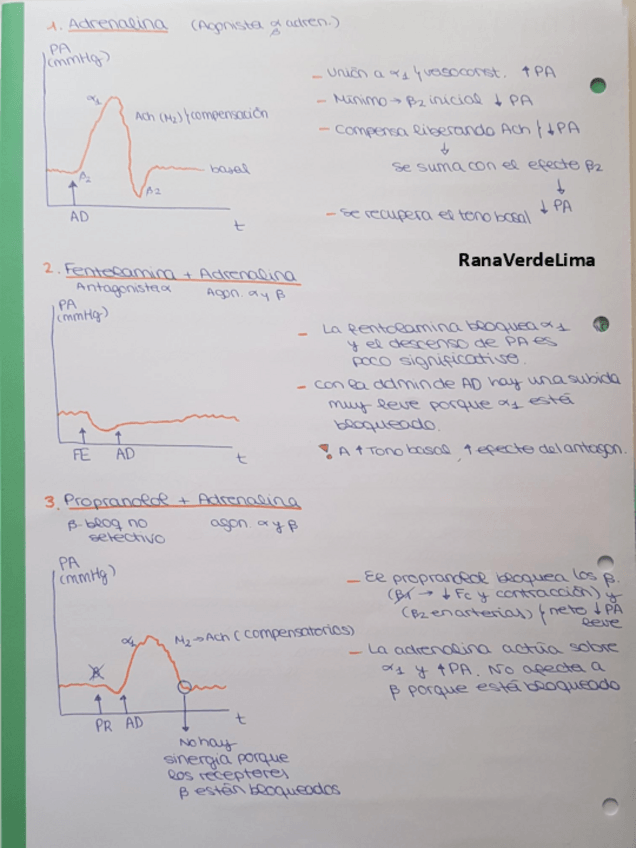 1. Adrenalina (Agonista α β adren.)
PA
(mmHg)
α1
Ach (M2) } compensación
β2
basal
β2
AD
t
- Unión a α1 } vasoconst. ↑ PA
- Mínimo → β2 inicial ↓ PA
- Compensa liberando Ach } ↓ PA
↓
se suma con el efecto β2
↓
↓ PA
- Se recupera el tono basal
RanaVerdeLima
2. Fentolamina + Adrenalina
Antagonista α Agon. α y β
PA
(mmHg)
FE AD
t
- La fentolamina bloquea α1
y el descenso de PA es
poco significativo.
- Con la admin de AD hay una subida
muy leve porque α1 está
bloqueado.
! A ↑ Tono basal, ↑ efecto del antagon.
3. Propranolol + Adrenalina
β-bloq no agon. α y β
selectivo
PA
(mmHg)
α1
M2 → Ach (compensatorias)
β
PR AD
t
No hay
sinergia porque
los receptores
β están bloqueados
- El propranolol bloquea los β.
(β1 → ↓ Fc y contracción) y
(β2 en arterias) } neto ↓ PA
leve
- La adrenalina actúa sobre
α1 y ↑ PA. No afecta a
β porque está bloqueado